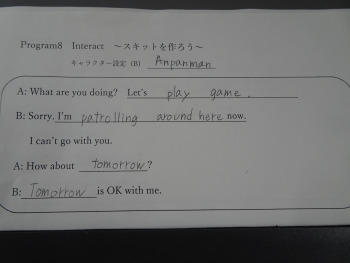 Program8 Interact ～スキットを作ろう～
キャラクター設定 (B) Anpanman
A: What are you doing? Let's play game.
B: Sorry, I'm patrolling around here now.
I can't go with you.
A: How about tomorrow?
B: Tomorrow is OK with me.